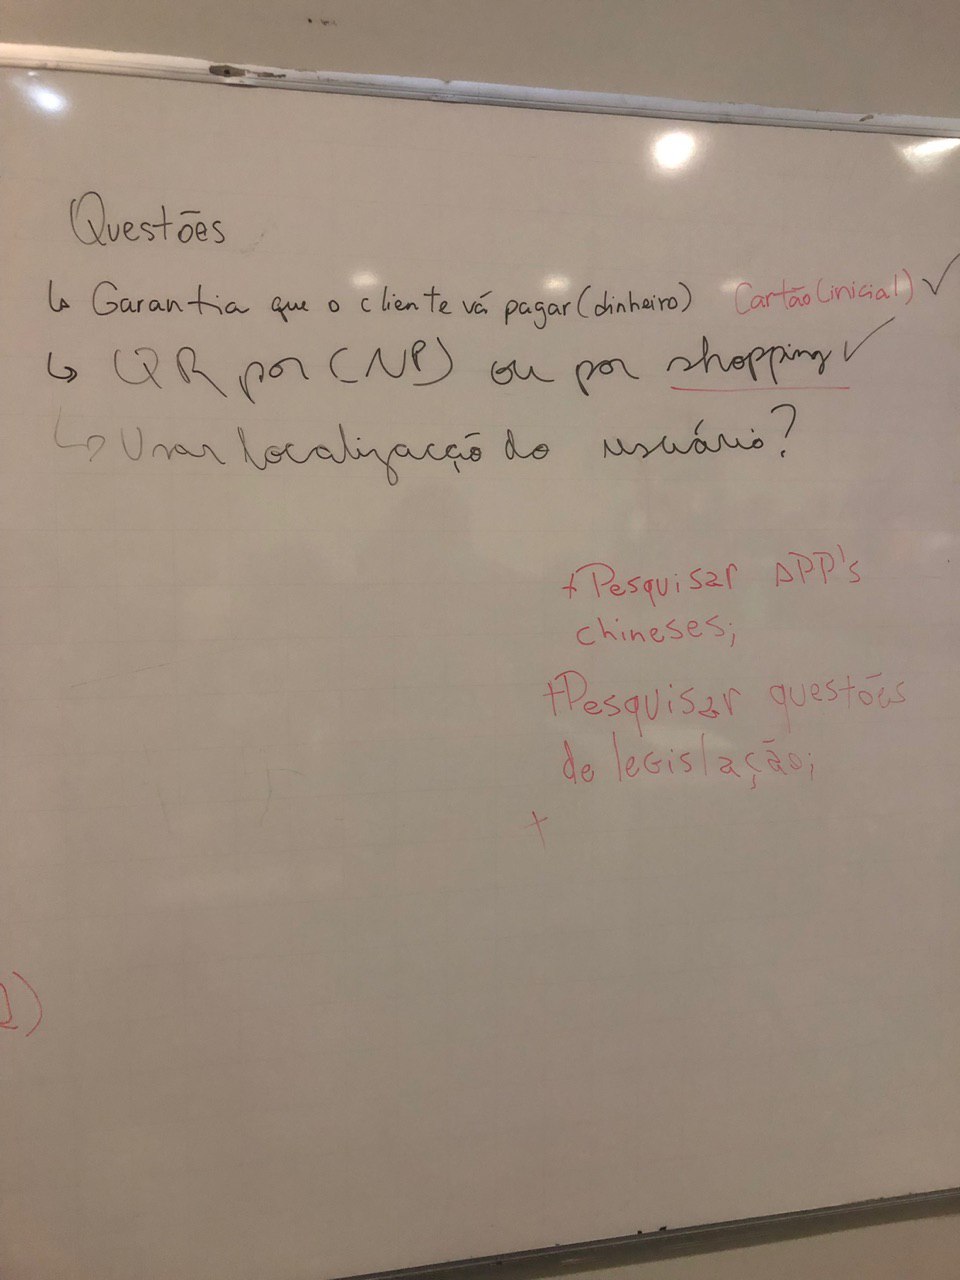 Questões
↳ Garantia que o cliente vá pagar (dinheiro) Cartão (inicial) ✓
↳ QR por (NP) ou por shopping ✓
↳ Usar localização do usuário?
+ Pesquisar APP's
chineses;
+ Pesquisar questões
de legislação;
+